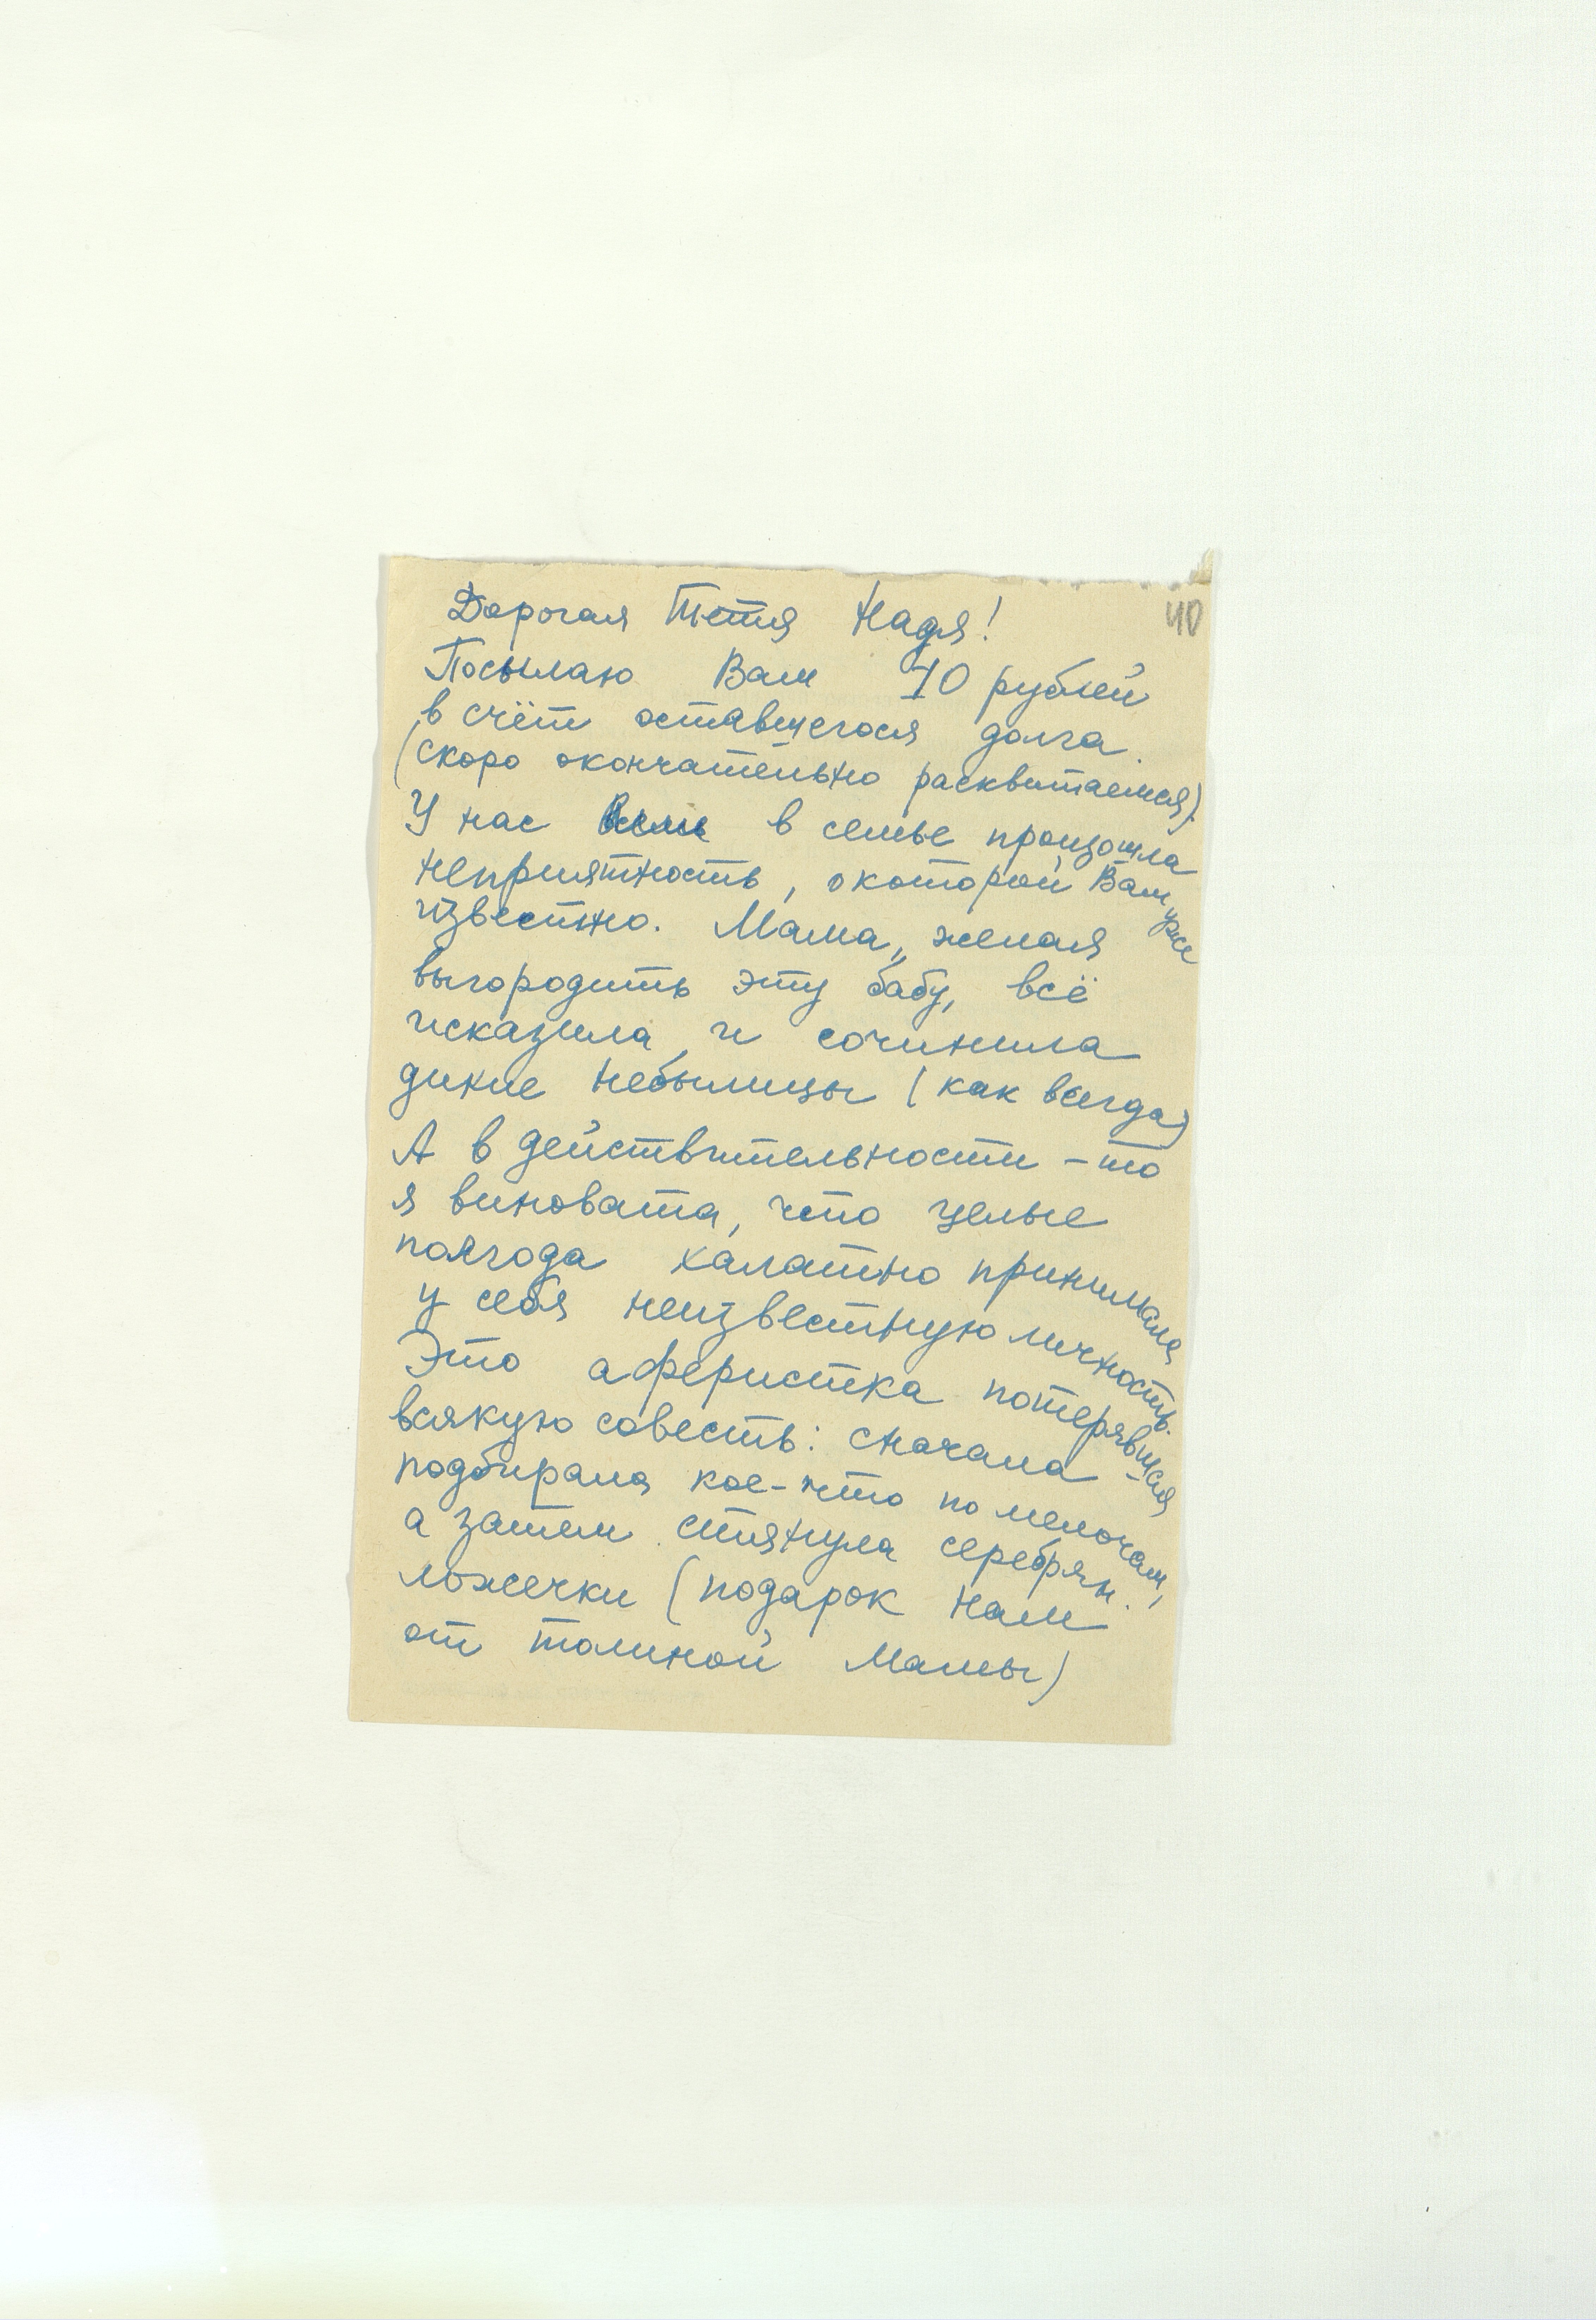 40
Дорогая Тётя Надя!
Посылаю Вам 10 рублей
в счёт оставшегося долга.
(скоро окончательно расквитаемся).
У нас в семье произошла
неприятность, о которой Вам уже
известно. Мама, желая
выгородить эту бабу, всё
исказила и сочинила
дикие небылицы (как всегда)
А в действительности-то
я виновата, что целые
полгода халатно принимала
у себя неизвестную личность.
Это аферистка потерявшая
всякую совесть: сначала
подбирала кое-что по мелочам,
а затем стянула серебрян.
ложечки (подарок нам
от толиной мамы)